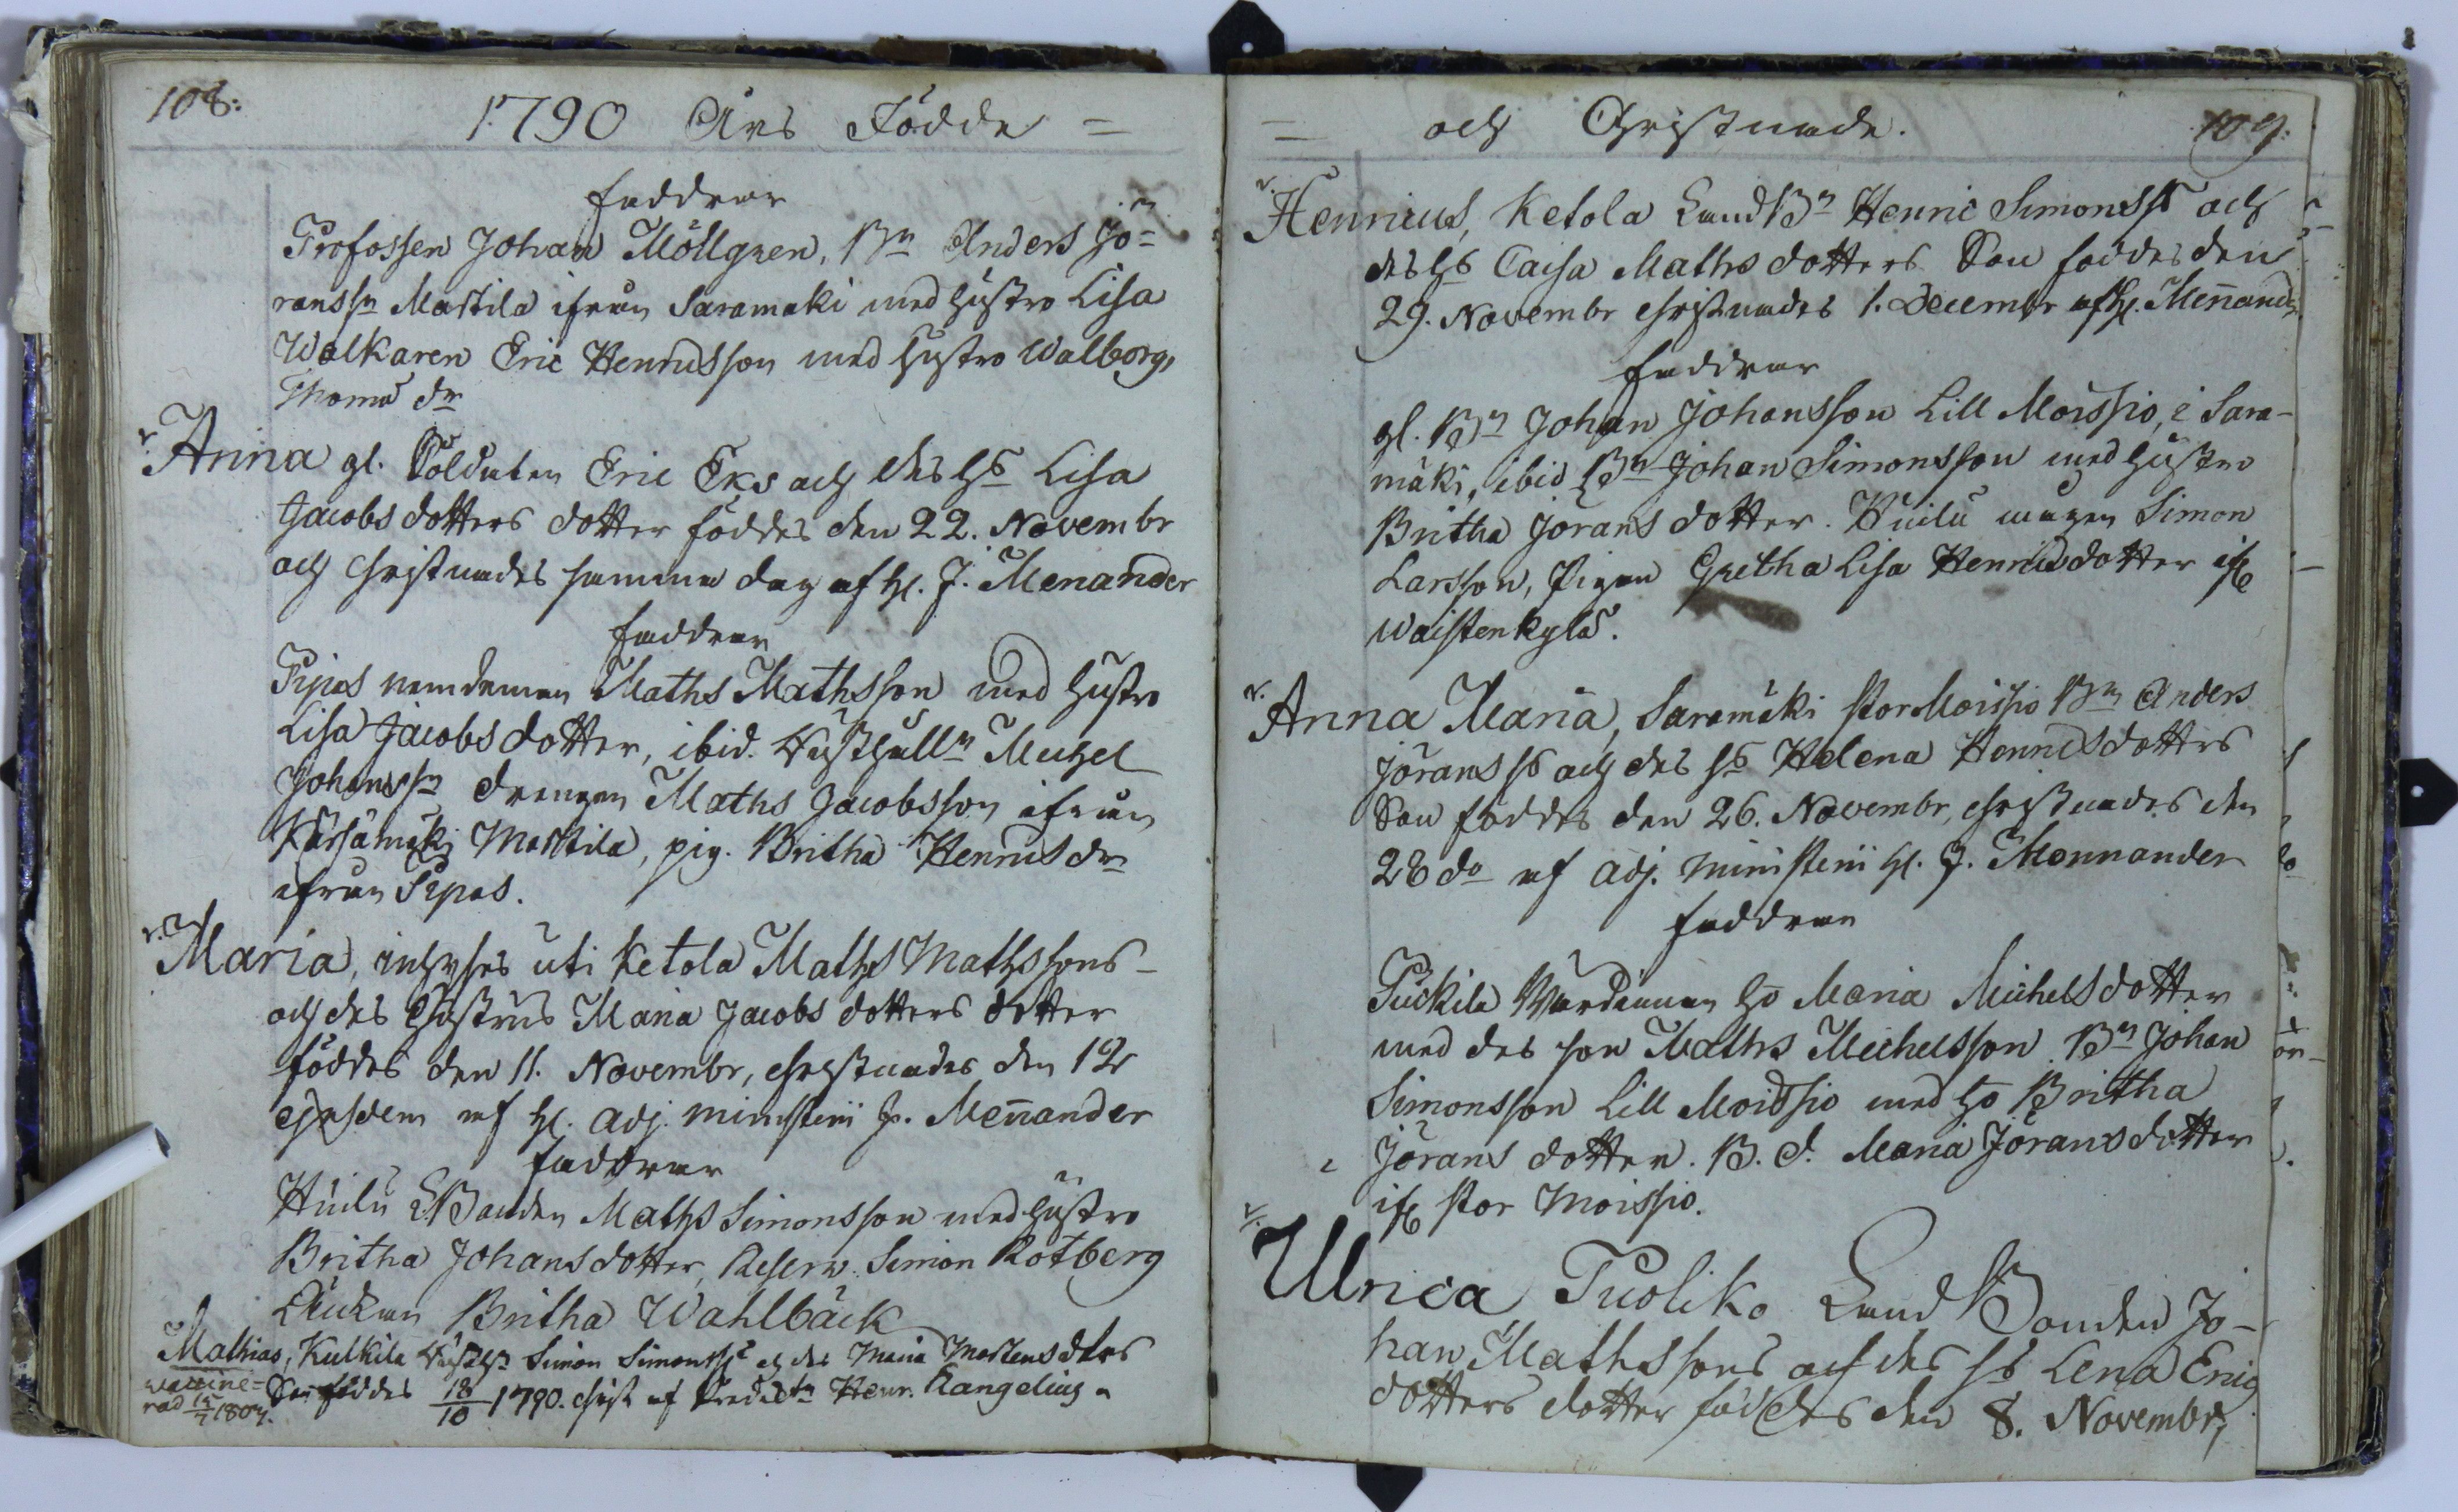 108:
1790 Års Födde =
faddrar
Profossen Johan Möllgren, Bn Anders Jö=
ranssn Martila ifrån Saramäki med hustro Lisa
Walkaren Eric Henricsson med hustro Walborg
Thomæ dr
v. Anna gl. Soldaten Eric Eks och des hs Lisa
Jacobs dotters dotter föddes den 22. Novembr
och Christnades samma dag af H. J. Menander
faddrar
Pipos nemdeman Maths Mathsson med hustro
Lisa Jacobs dotter, ibid. Michel
Johanssn drengen Maths Jacobsson ifrån
Kärsämäki Martila, pig. Britha Henrics dr
ifrån Pipos.
v. Maria, inhyses uti Ketola Maths Mathssons
och des hustrus Maria Jacobs dotters dotter
föddes den 11. Novembr, christnades den 12
ejusdem af H. adj. ministerii J. Menander
faddrar
Huilu LBonden Maths Simonsson med hustro
Britha Johans dotter, Reserv. Simon Rotberg
Enckan Britha Wahlbäck
Mathias, Kulkila Simon Simonss och des Maria Mortens dtrs
waccine=
rad 14/7 1804.
Son föddes 18/10 1790. christ af Henr. Rangelius
= och Christnade. 109.
v. Henricus, Ketola LandBn Henric Simonss och
des hs Caisa Maths dotters Son föddes den
29. Novembr christnades 1. Decembr af H. Menander
faddrar
gl. Bn Johan Johansson Lill Moissio, i Sara-
mäki, ibid Bn Johan Simonsson med hustro
Britha Jörans dotter. Huilu mågen Simon
Larsson, Pigan Gretha Lisa Henricsdotter ifr
Waistenkylä.
v. Anna Maria, Saramäki stor Moissio Bn Anders
Jöranss och des hs Helena Henrics dotters
Son föddes den 26. Novembr, christnades den
28 do af adj. ministerii H. J. Mennander
faddrar
Puckila Wärdinnan ho Maria Michels dotter
med des son Maths Michelsson. Bn Johan
Simonsson Lill Moissio med ho Britha
Jörans dotter. B. d. Maria Jörans dotter
ifr stor Moissio.
v. Ulrica Tuoliko Land Bonden Jo-
han Mathssons och des hs Lena Erics
dotters dotter föddes den 8. Novembr,